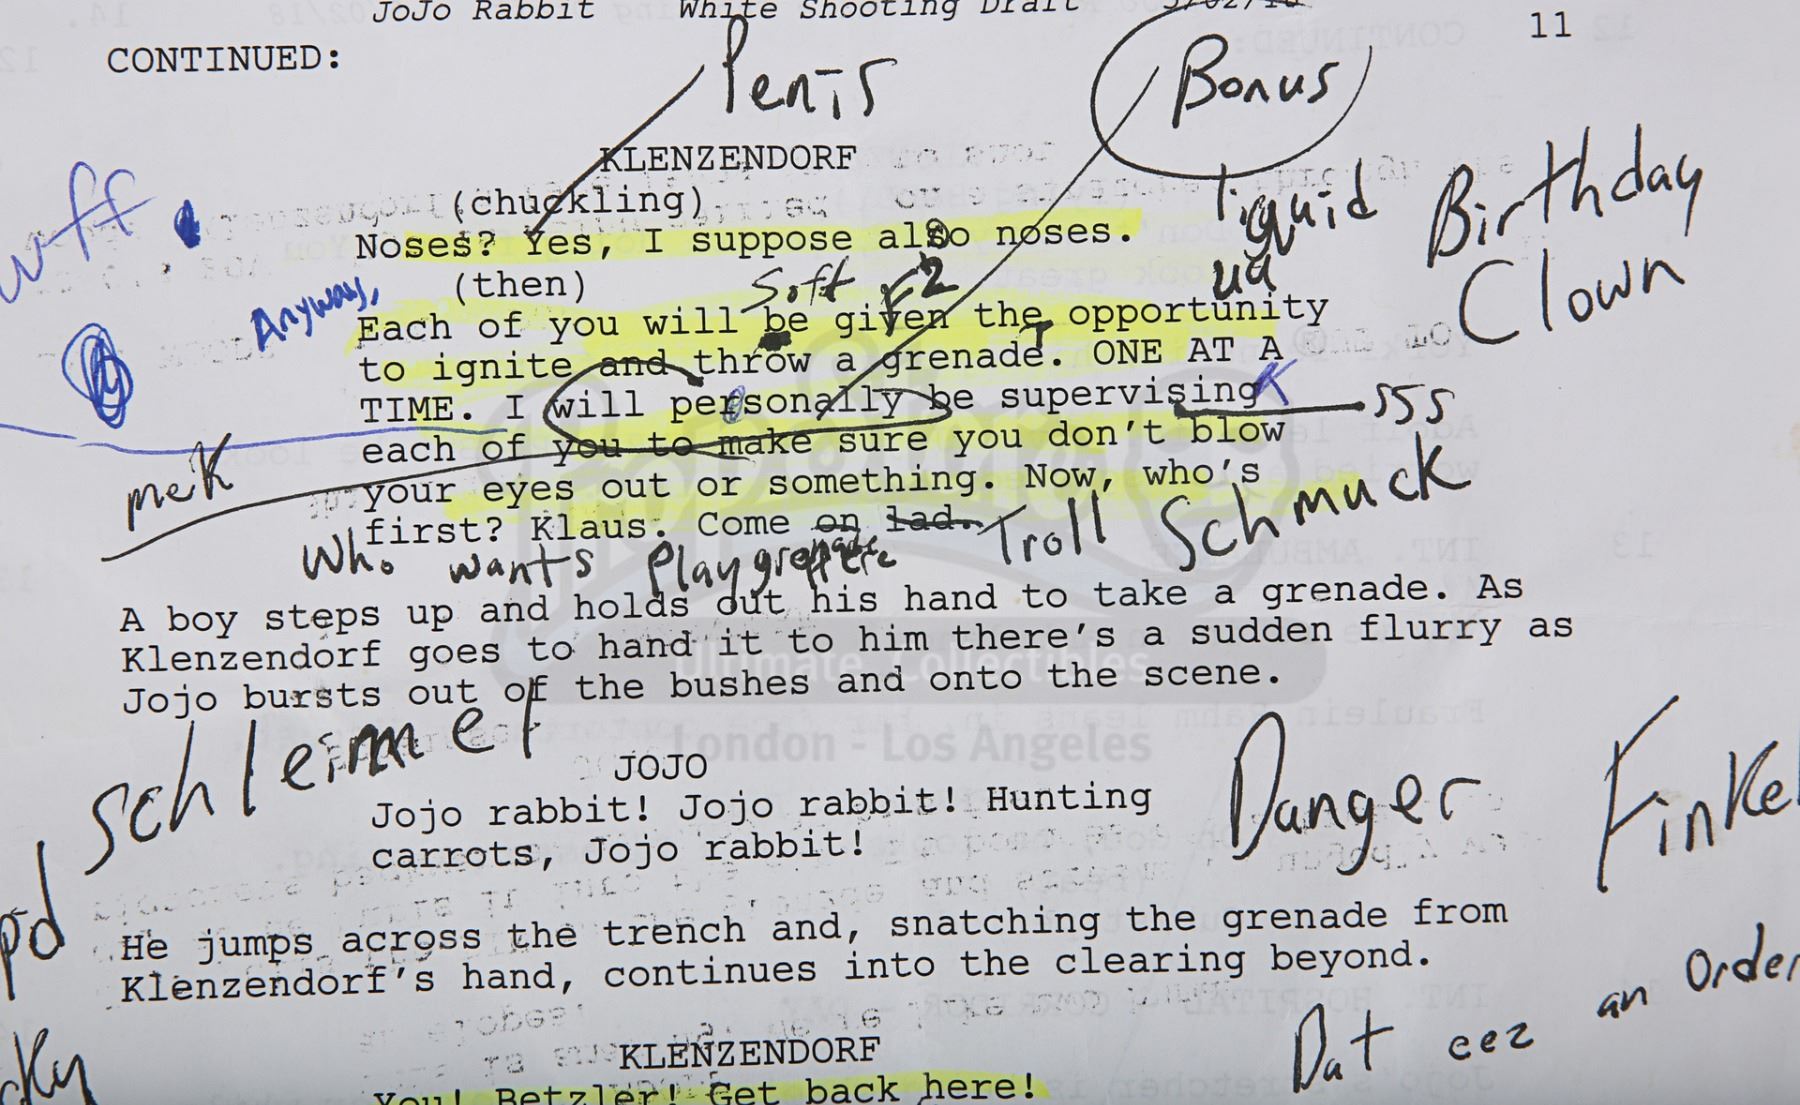 JoJo Rabbit White Shooting Draft
CONTINUED:
11
Penis
Bonus
KLENZENDORF
(chuckling)
Noses? Yes, I suppose also noses.
liquid
Birthday
Clown
(then)
Soft
Anyway,
Each of you will be given the opportunity
to ignite and throw a grenade. ONE AT A
TIME. I will personally be supervising
sss
each of you to make sure you don't blow
mek
your eyes out or something. Now, who's
first? Klaus. Come on lad.
Troll Schmuck
Who wants
A boy steps up and holds out his hand to take a grenade. As
Klenzendorf goes to hand it to him there's a sudden flurry as
Jojo bursts out of the bushes and onto the scene.
Ultimate Collectibles
London - Los Angeles
Schleimel
Danger
JOJO
Jojo rabbit! Jojo rabbit! Hunting
carrots, Jojo rabbit!
He jumps across the trench and, snatching the grenade from
Klenzendorf's hand, continues into the clearing beyond.
Dat eez an Order
KLENZENDORF
You! Betzler! Get back here!